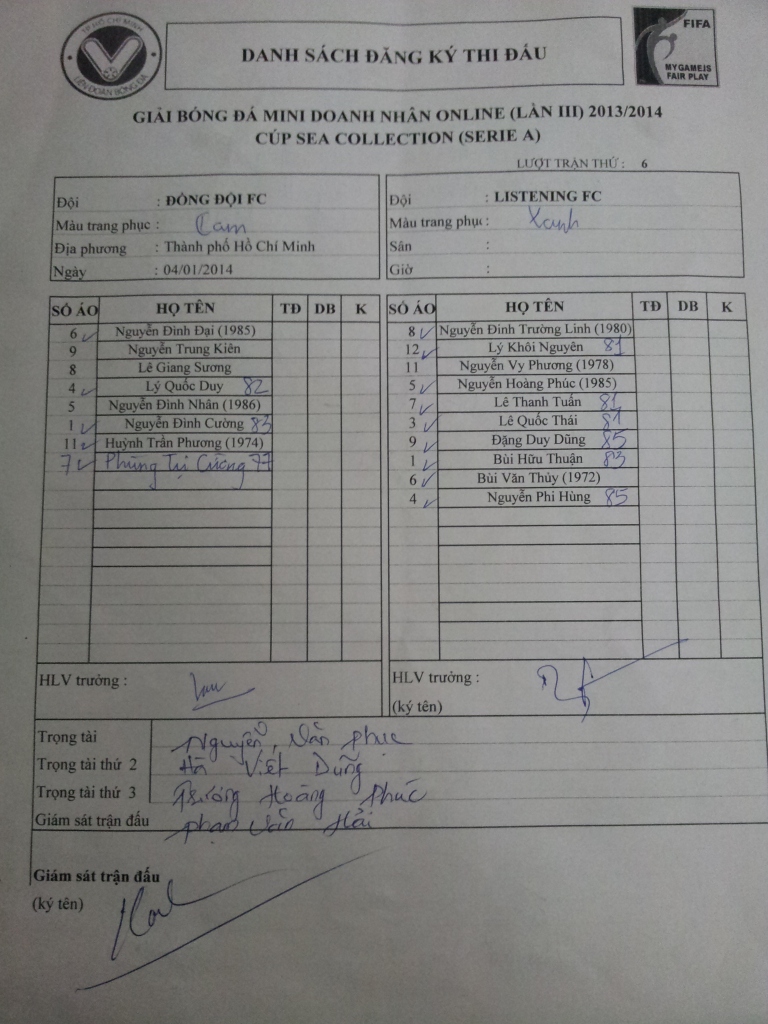 TP HỒ CHÍ MINH
LIÊN ĐOÀN BÓNG ĐÁ
DANH SÁCH ĐĂNG KÝ THI ĐẤU
FIFA
MY GAME IS
FAIR PLAY
GIẢI BÓNG ĐÁ MINI DOANH NHÂN ONLINE (LẦN III) 2013/2014
CÚP SEA COLLECTION (SERIE A)
LƯỢT TRẬN THỨ : 6
Đội : ĐỒNG ĐỘI FC
Màu trang phục : Cam
Địa phương : Thành phố Hồ Chí Minh
Ngày : 04/01/2014
Đội : LISTENING FC
Màu trang phục : Xanh
Sân :
Giờ :
SỐ ÁO HỌ TÊN TĐ DB K
6 Nguyễn Đình Đại (1985)
9 Nguyễn Trung Kiên
8 Lê Giang Sương
4 Lý Quốc Duy 82
5 Nguyễn Đình Nhân (1986)
1 Nguyễn Đình Cường 83
11 Huỳnh Trần Phương (1974)
7 Phùng Tự Cường 77
SỐ ÁO HỌ TÊN TĐ DB K
8 Nguyễn Đinh Trường Linh (1980)
12 Lý Khôi Nguyên 81
11 Nguyễn Vy Phương (1978)
5 Nguyễn Hoàng Phúc (1985)
7 Lê Thanh Tuấn 81
3 Lê Quốc Thái 81
9 Đặng Duy Dũng 85
1 Bùi Hữu Thuận 83
6 Bùi Văn Thủy (1972)
4 Nguyễn Phi Hùng 85
HLV trưởng :
HLV trưởng :
(ký tên)
Trọng tài Nguyễn Văn Phục
Trọng tài thứ 2 Hà Việt Dũng
Trọng tài thứ 3 Trương Hoàng Phúc
Giám sát trận đấu Phạm Văn Hải
Giám sát trận đấu
(ký tên)